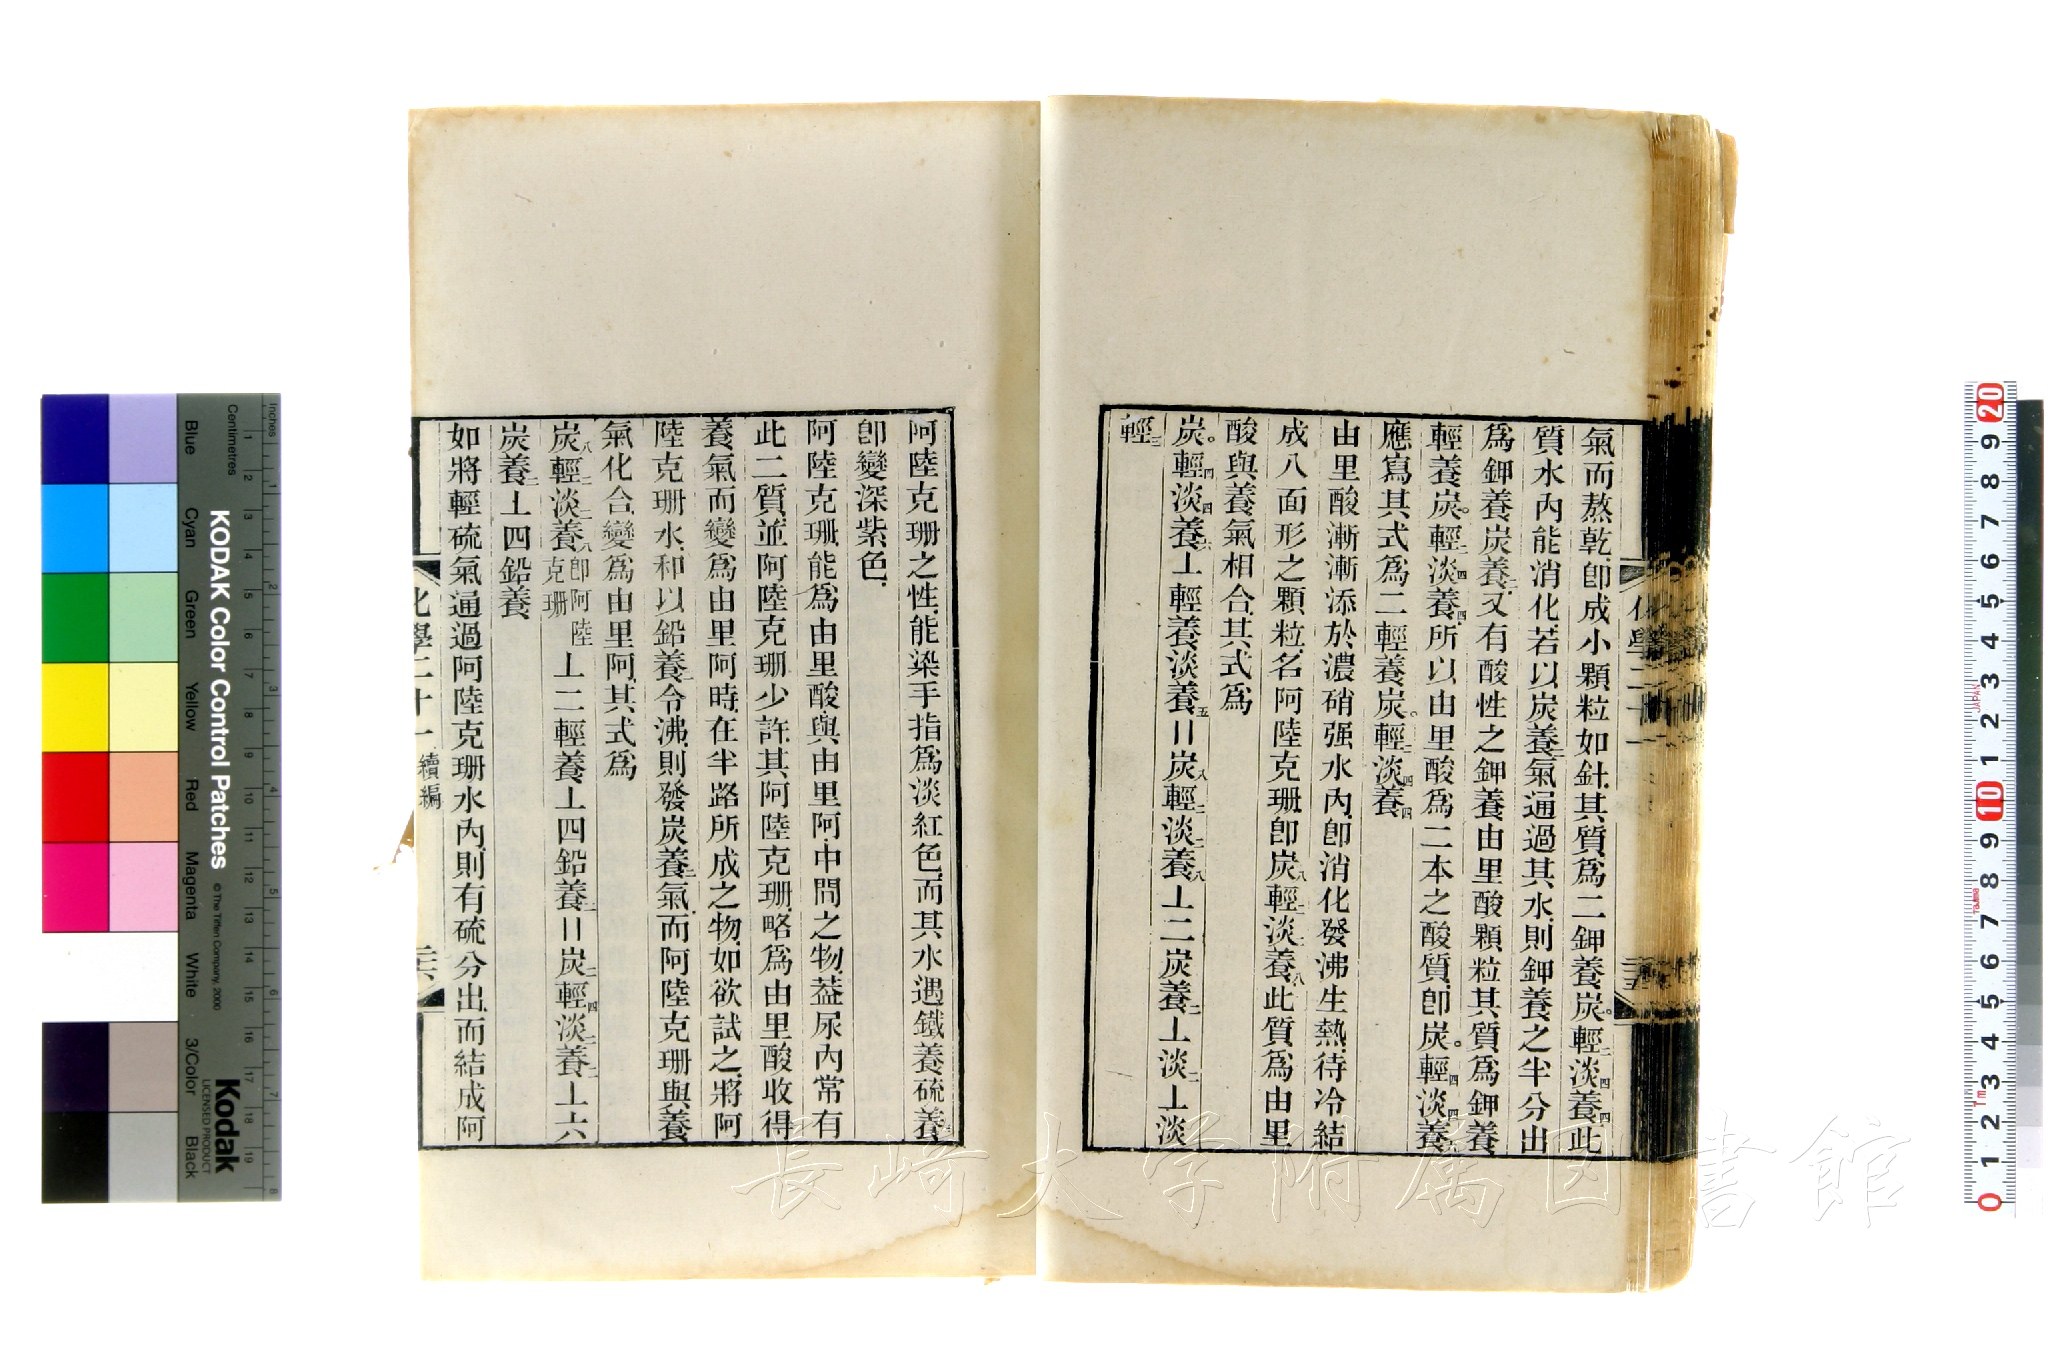 氣而熬乾卽成小顆粒如針其質爲二鉀養炭。輕二淡四養四此
質水內能消化若以炭養二氣通過其水則鉀養之半分出
爲鉀養炭養二又有酸性之鉀養由里酸顆粒其質爲鉀養
輕養炭。輕二淡四養四所以由里酸爲二本之酸質卽炭。輕四淡四養六
應寫其式爲二輕養炭。輕二淡四養四
由里酸漸漸添於濃硝强水內卽消化發沸生熱待冷結
成八面形之顆粒名阿陸克珊卽炭八輕二淡二養八此質爲由里
酸與養氣相合其式爲
炭。輕四淡四養六丄輕養淡養五〢炭八輕二淡二養八丄二炭養二丄淡二丄淡
輕三
化學二十一
二十五
阿陸克珊之性能染手指爲淡紅色而其水遇鐵養硫養三
卽變深紫色
阿陸克珊能爲由里酸與由里阿中間之物葢尿內常有
此二質並阿陸克珊少許其阿陸克珊略爲由里酸收得
養氣而變爲由里阿時在半路所成之物如欲試之將阿
陸克珊水和以鉛養二令沸則發炭養二氣而阿陸克珊與養
氣化合變爲由里阿其式爲
炭八輕二淡二養八卽阿陸克珊丄二輕養丄四鉛養二〢炭二輕四淡二養二丄六
炭養二丄四鉛養
如將輕硫氣通過阿陸克珊水內則有硫分出而結成阿
化學二十一 續編
二十六
KODAK Color Control Patches
© The Tiffen Company, 2000
Kodak
LICENSED PRODUCT
Inches
Centimetres
Blue
Cyan
Green
Yellow
Red
Magenta
White
3/Color
Black
長崎大学附属図書館